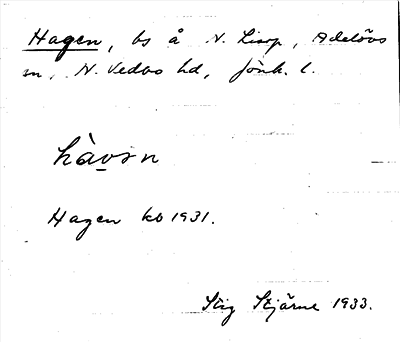 Hagen, bs å N. Liarp, Adelövs
sn, N. Vedbo hd, Jönk. l.
Hagen kb 1931.
Stig Stjärne 1933.